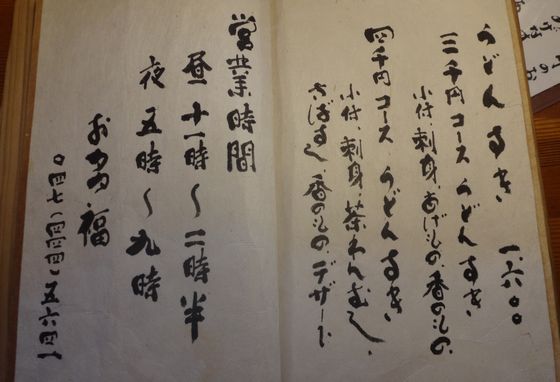 うどんすき 一、六〇〇
三千円コース うどんすき
小付、刺身、あげもの、香のもの、
四千円コース うどんすき
小付、刺身、茶わんむし、
さばずし、香のもの、デザート
営業時間
昼 十一時〜二時半
夜 五時〜九時
お多福